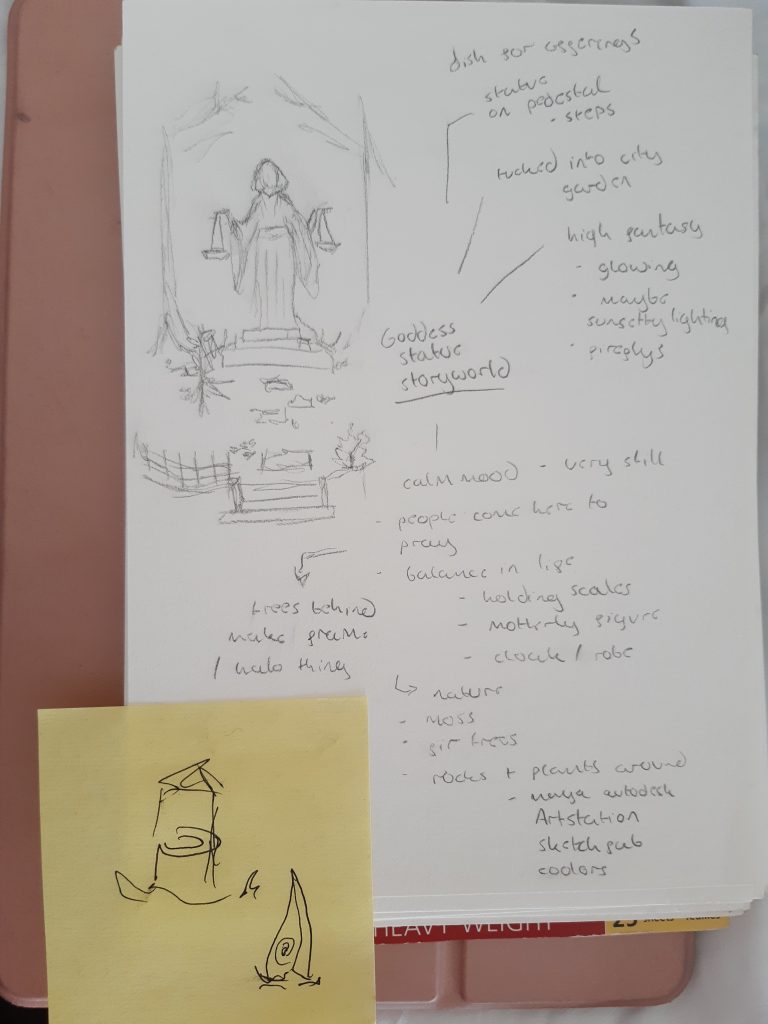 dish for offerings
statue
on pedestal
- steps
tucked into city
garden
high fantasy
- glowing
- maybe
sunsetty lighting
- fireflys
Goddess
statue
storyworld
calm mood - very still
- people come here to
pray
- balance in life
- holding scales
- motherly figure
- cloak / robe
trees behind
make frame
/ halo thing
nature
- moss
- fir trees
- rocks + plants around
- maya autodesk
Artstation
sketchfab
coolors
HEAVY WEIGHT
25